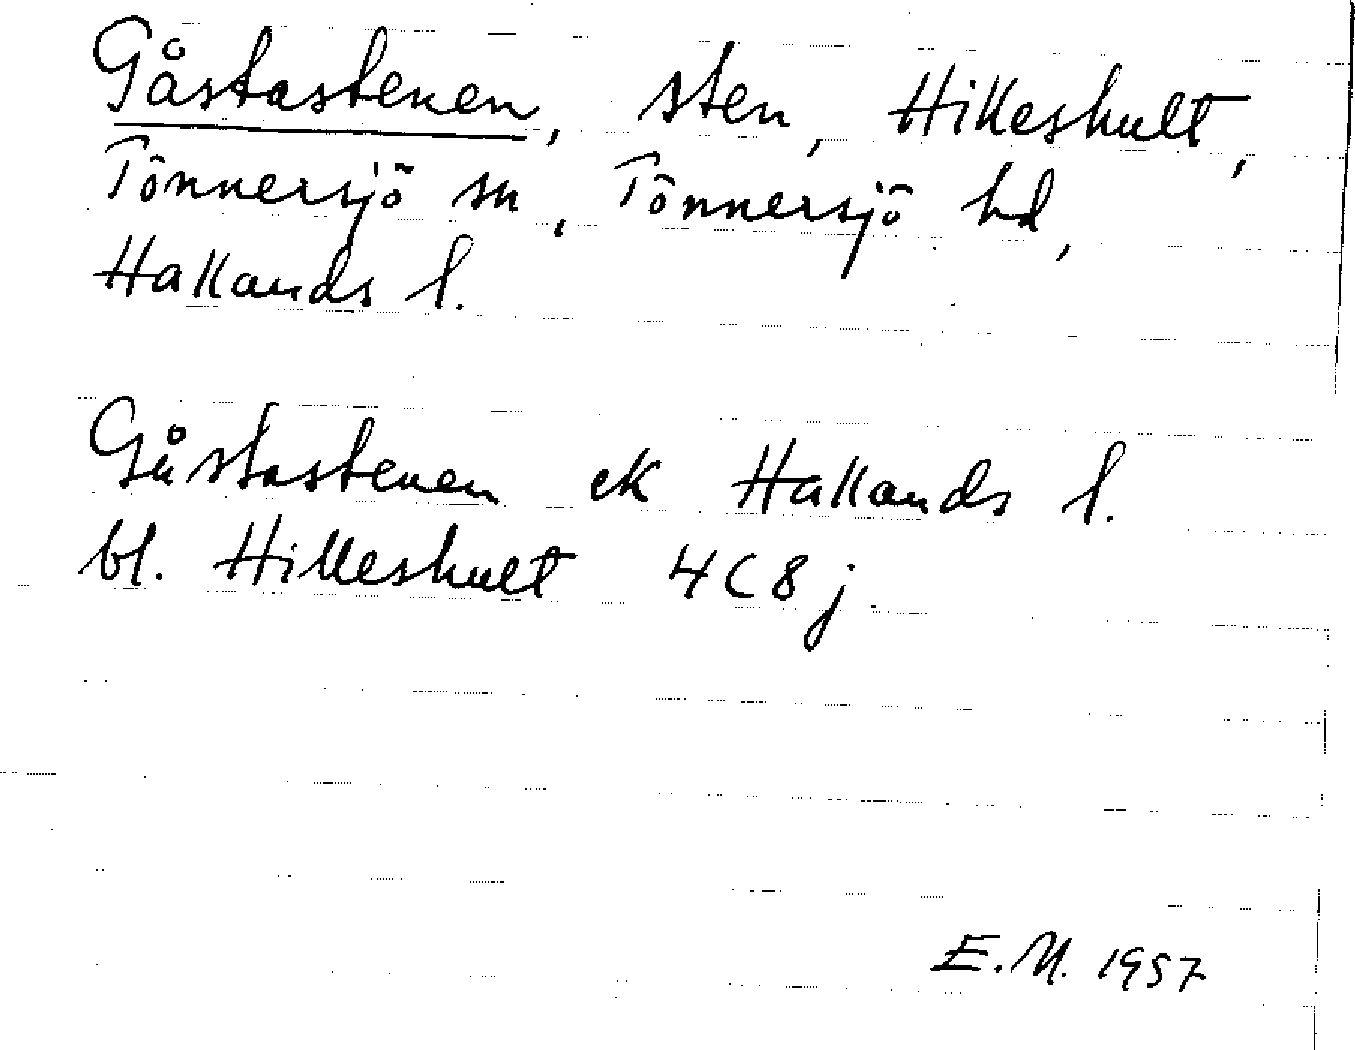 Gåstastenen, sten, Hilleshult,
Tönnersjö sn, Tönnersjö hd,
Hallands l.
Gåstastenen ek Hallands l.
bl. Hilleshult 4C8j
E.M. 1957